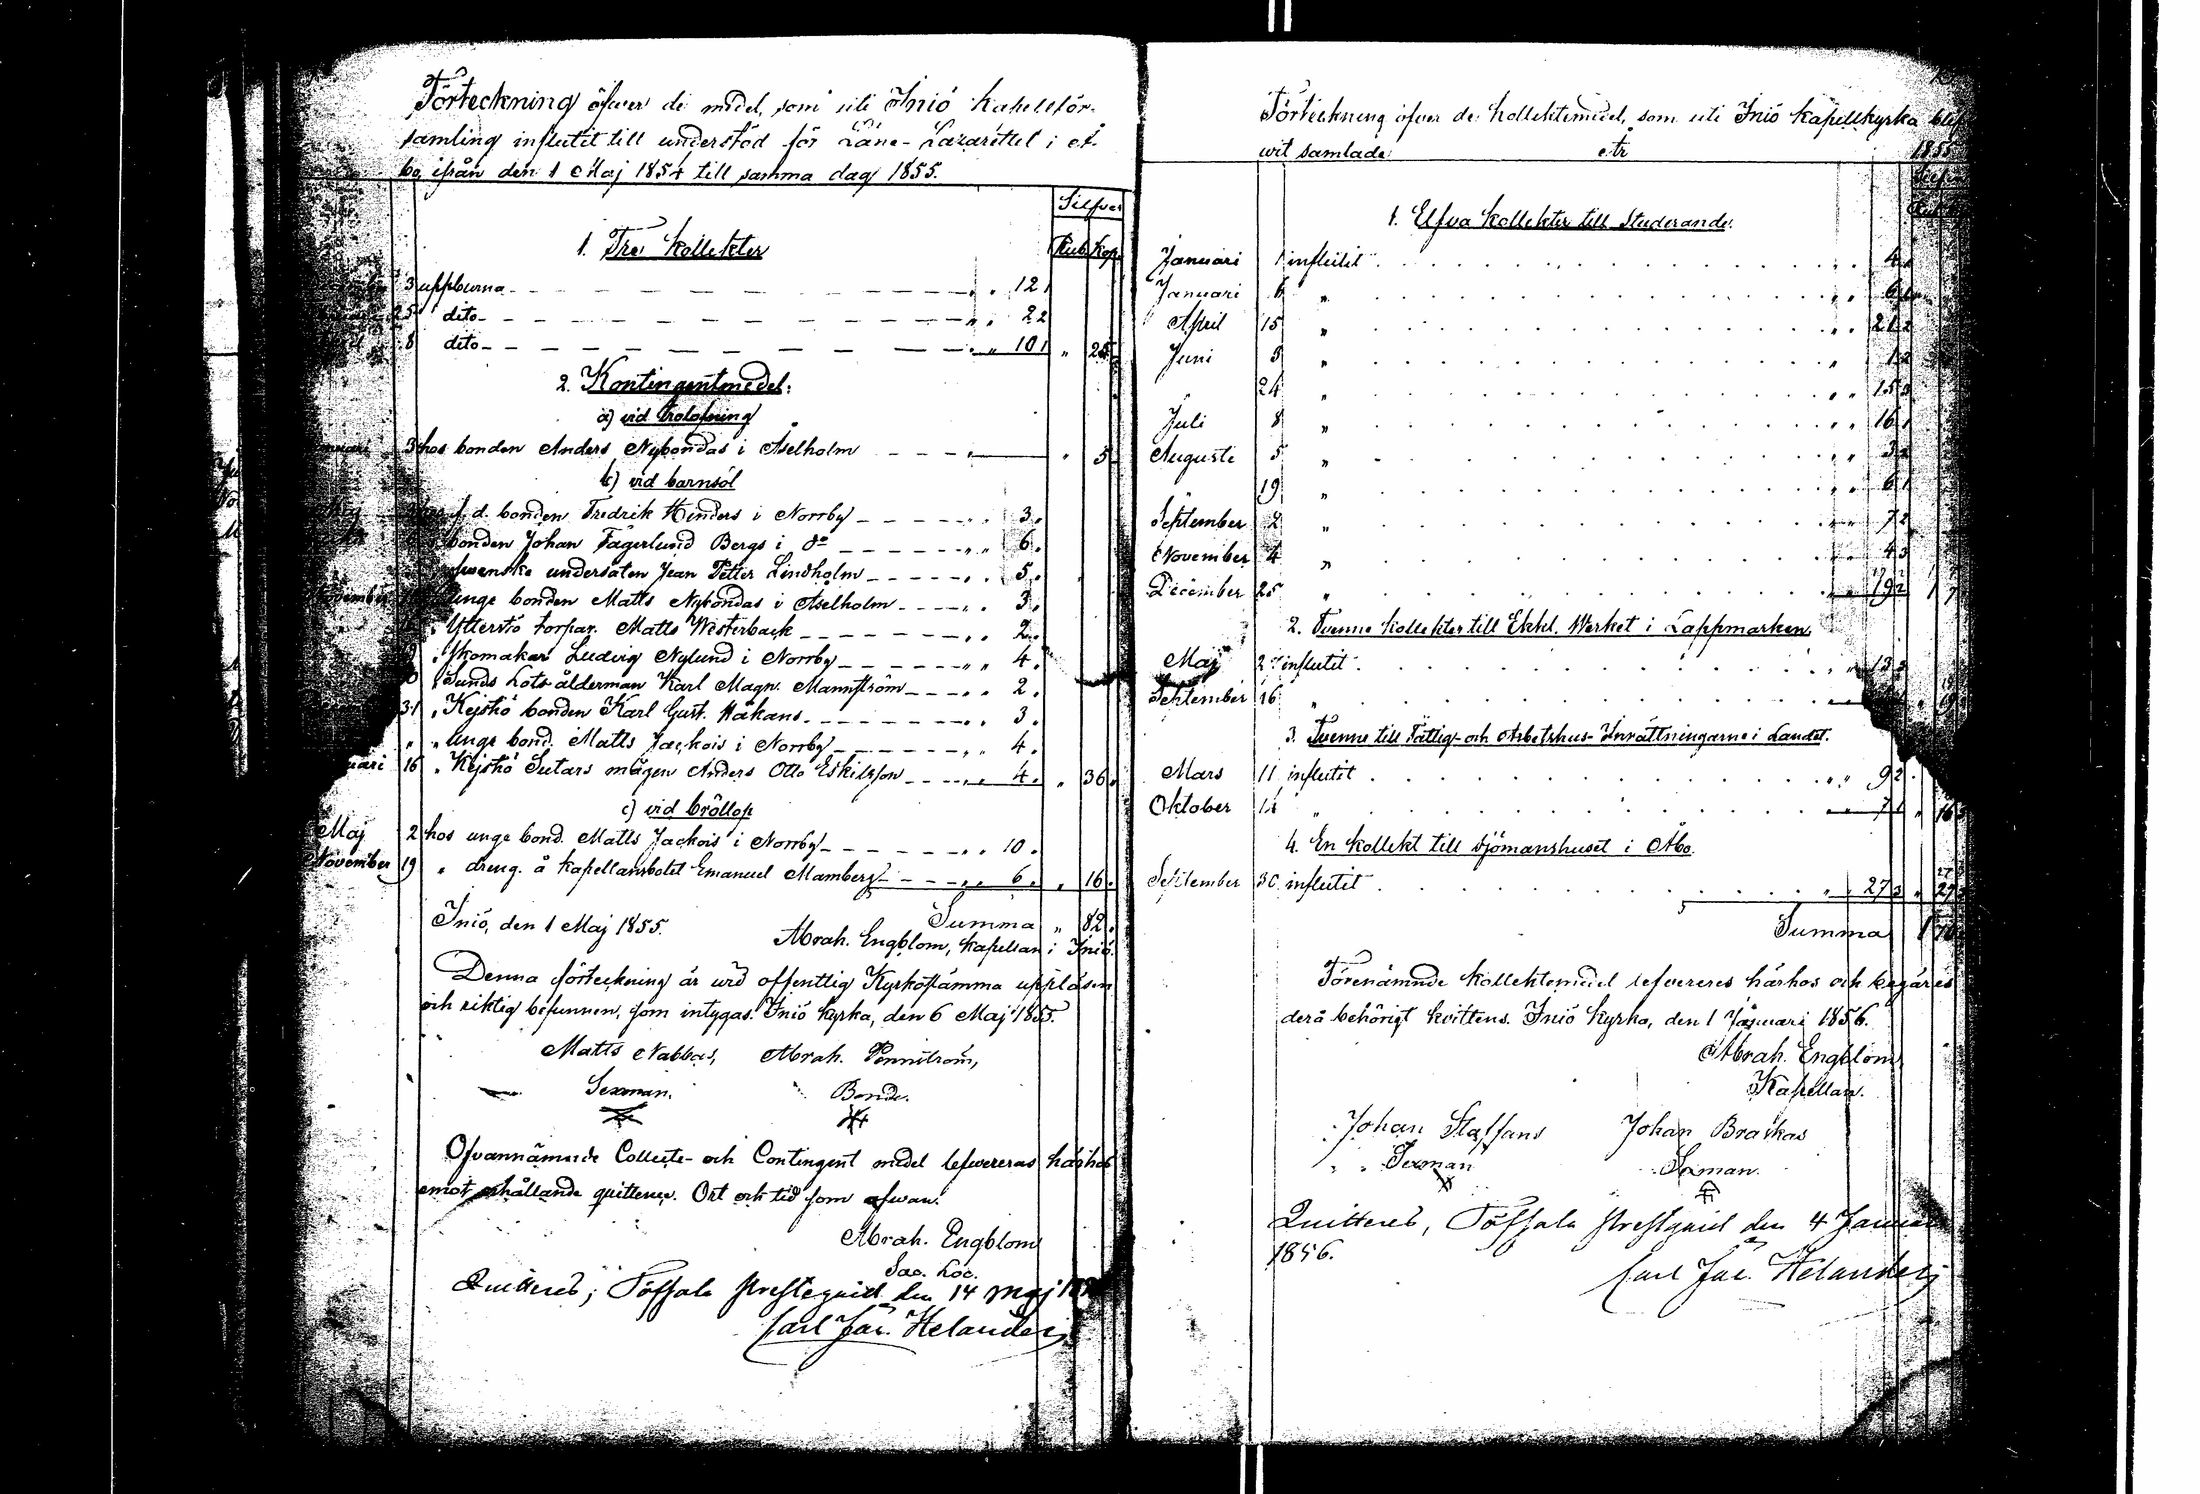 Förteckning öfwer de medel, som uti Iniö Kapellför-
samling influtit till understöd för Läns-Lazarettet i Å-
bo ifrån den 1 Maj 1854 till samma dag 1855.
Silfver
Rub. Kop.
1. Tre Kollekter
3 uppburna " " 12
25 dito " " 22
8 dito " " 10
2. Kontingentmedel:
a) vid trolofning
3 hos bonden Anders Nybondas i Åselholm " 5
b) vid barnsöl
f. d. bonden Fredrik Hinders i Norrby " " 3.
bonden Johan Fagerlund Bergs i do " " 6.
Swenske undersåten Jean Petter Lindholm " " 5.
unge bonden Matts Nybondas i Åselholm " " 3.
" Ytterstö torpar. Matts Westerback " " 2.
" Skomakar Ludvig Nylund i Norrby " " 4.
" Sunds Lots ålderman Karl Magn. Mannström " " 2.
31 " Kejstiö bonden Karl Gust. Håkans " " 3.
" " unge bond. Matts Jackois i Norrby " " 4.
16 " Kejstiö Sutars mågen Anders Otto Eskilsson " " 4. " 36.
c) vid bröllop
Maj 2 hos unge bond. Matts Jackois i Norrby " " 10.
November 19 " dreng. å Kapellansbolet Emanuel Mamberg " " 6. " 16.
Summa " 82.
Iniö, den 1 Maj 1855.
Abrah. Engblom, Kapellan i Iniö.
Denna förteckning är wid offentlig Kyrkostämma uppläsen
och riktig befunnen, som intygas. Iniö Kyrka, den 6 Maj 1855.
Matts Nabbas, Abrah. Pennström,
Sexman. Bonde.
Ofvannämnde Collecte- och Contingent medel lefwereras härhos
emot erhållande quittence. Ort och tid som ofwan.
Abrah. Engblom
Sac. Loc.
Quitteras; Töfsala Prestegård den 14 Maj
Carl Jac. Helander
Förteckning öfver de Kollektemedel, som uti Iniö Kapellkyrka blif-
wit samlade år 1855
1. Elfva Kollekter till Studerande.
Januari 1 influtit
Januari 6 "
April 15 "
Juni 3 "
24 "
Juli 8 "
Augusti 5 "
19 "
September 2 "
November 4 "
December 25 "
2. Tvenne Kollekter till Ekkl. Werket i Lappmarken
Maj influtit
September 16 "
3. Tvenne till Fattig- och Arbetshus-Inrättningarne i Landet.
Mars 11 influtit
Oktober 14 "
4. En Kollekt till Sjömanshuset i Åbo.
September 30 influtit
Summa
Förenämnde Kollektemedel lefvereres härhos och begäres
derå behörigt kvittens. Iniö Kyrka, den 1 Januari 1856.
Abrah. Engblom
Kapellan.
Johan Staffans Johan Braskas
Sexman Sexman.
Quitteras, Töfsala Prestgård den 4 Januari
1856.
Carl Jac. Helander